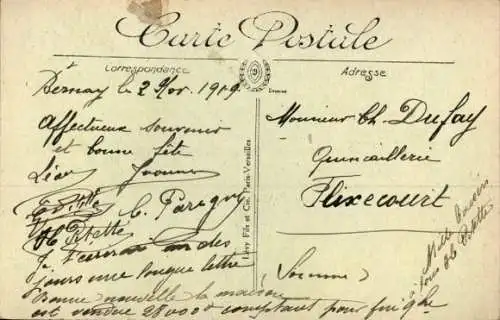 Carte Postale
Correspondance
Adresse
Bernay le 2 Nov. 1919
Affectueux souvenir
et bonne fête
Léa Yvonne
C. Paregny
Je ferai un des
jours une longue lettre
Bonne nouvelle la maison
est vendue 28000 comptant pour
Lévy Fils et Cie, Paris-Versailles
Monsieur Ch. Dufay
Quincaillerie
Flixecourt
(Somme)
Mille baisers
à tous